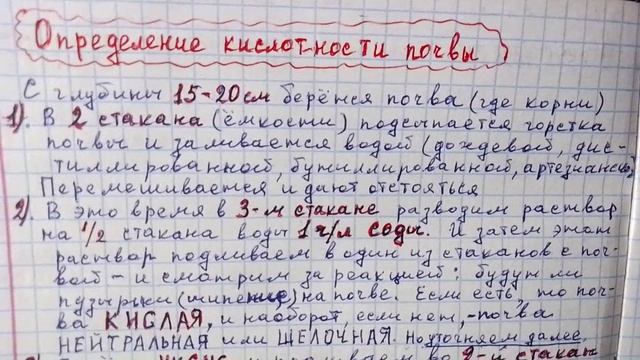 Определение кислотности почвы
С глубины 15-20 см берётся почва (где корни)
1). В 2 стакана (ёмкости) подсыпается горстка
почвы и заливается водой (дождевой, дис-
тиллированной, бутилированной, артезианской)
Перемешивается и дают отстояться
2). В это время в 3-м стакане разводим раствор
на 1/2 стакана воды 1 ч/л соды. И затем этот
раствор подливаем в один из стаканов с поч-
вой - и смотрим за реакцией: будут ли
пузырьки (шипение) на почве. Если есть, то поч-
ва КИСЛАЯ, и наоборот, если нет, - почва
НЕЙТРАЛЬНАЯ или ЩЕЛОЧНАЯ. Но уточняем далее.
во 2-й стакан